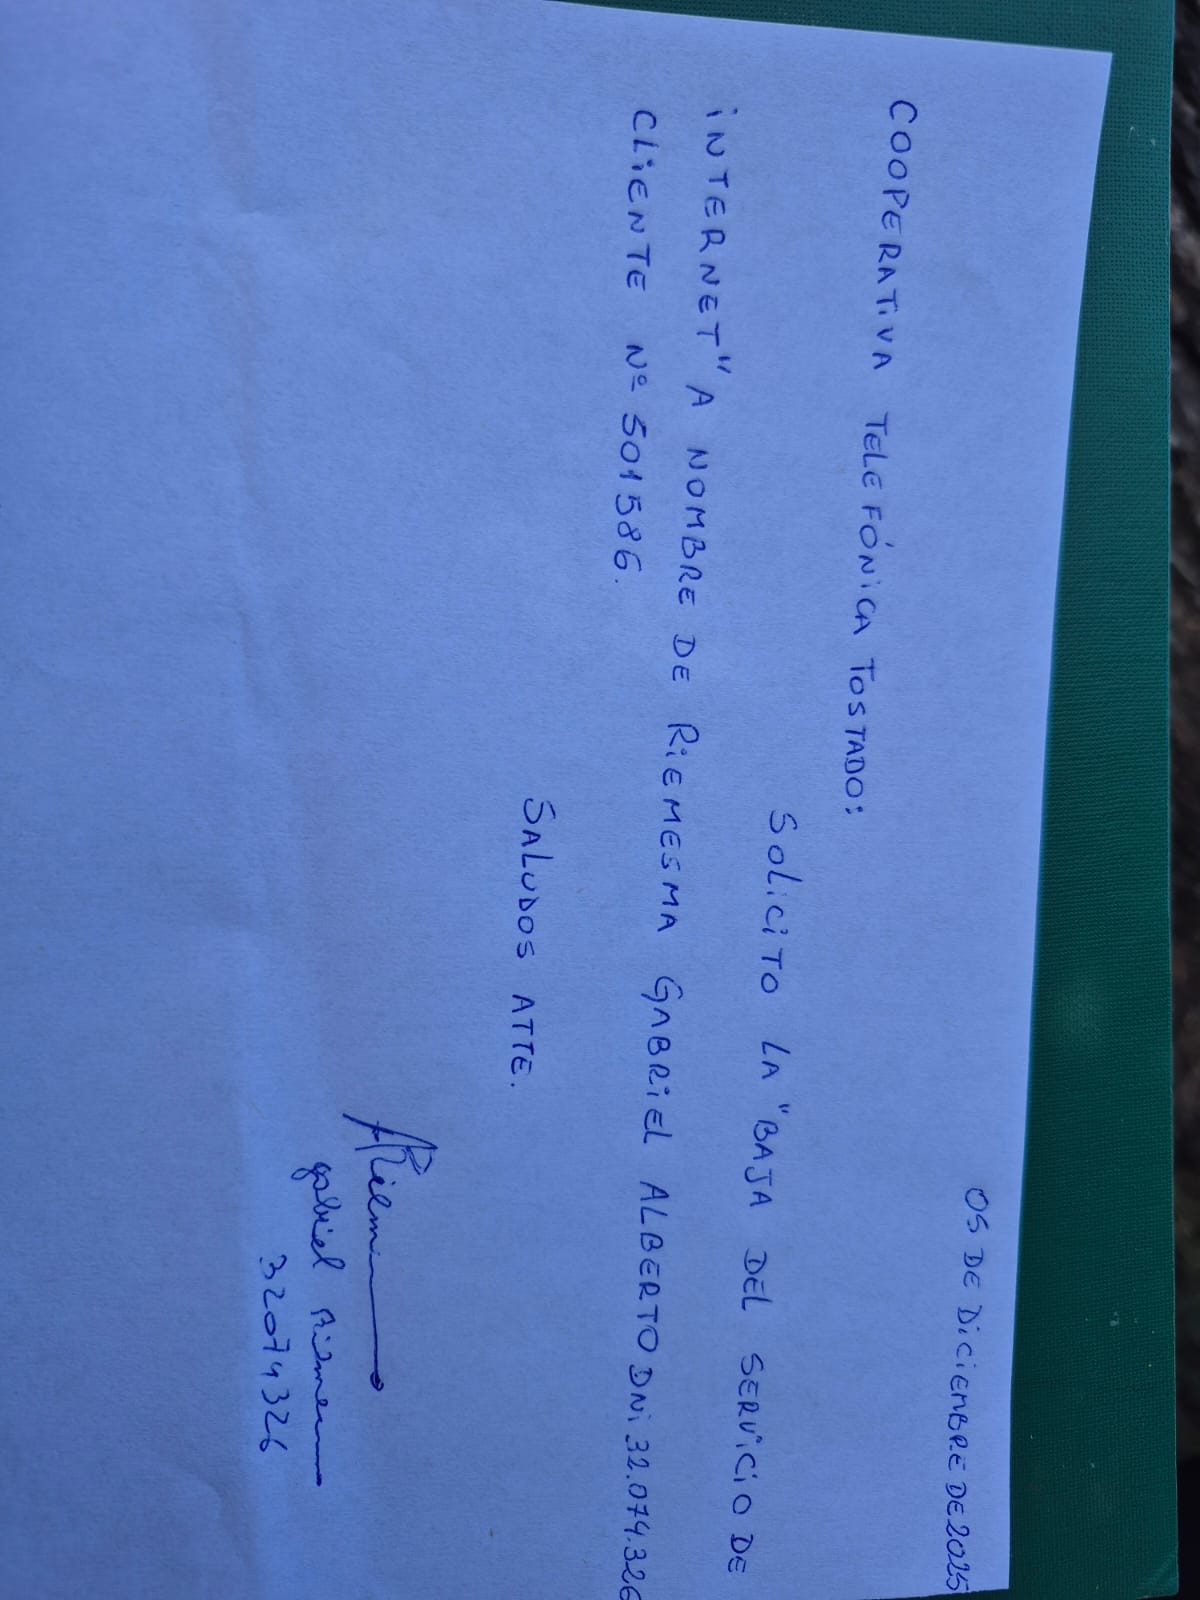 05 DE DiCiEMBRE DE 2025
COOPERATiVA TELEFÓNiCA TOSTADO:
SOLiCiTO LA "BAJA DEL SERViCiO DE
iNTERNET" A NOMBRE DE RiEMESMA GABRiEL ALBERTO DNi 32.074.326
CLiENTE Nº 501586.
SALUDOS ATTE.
gabriel
32074326